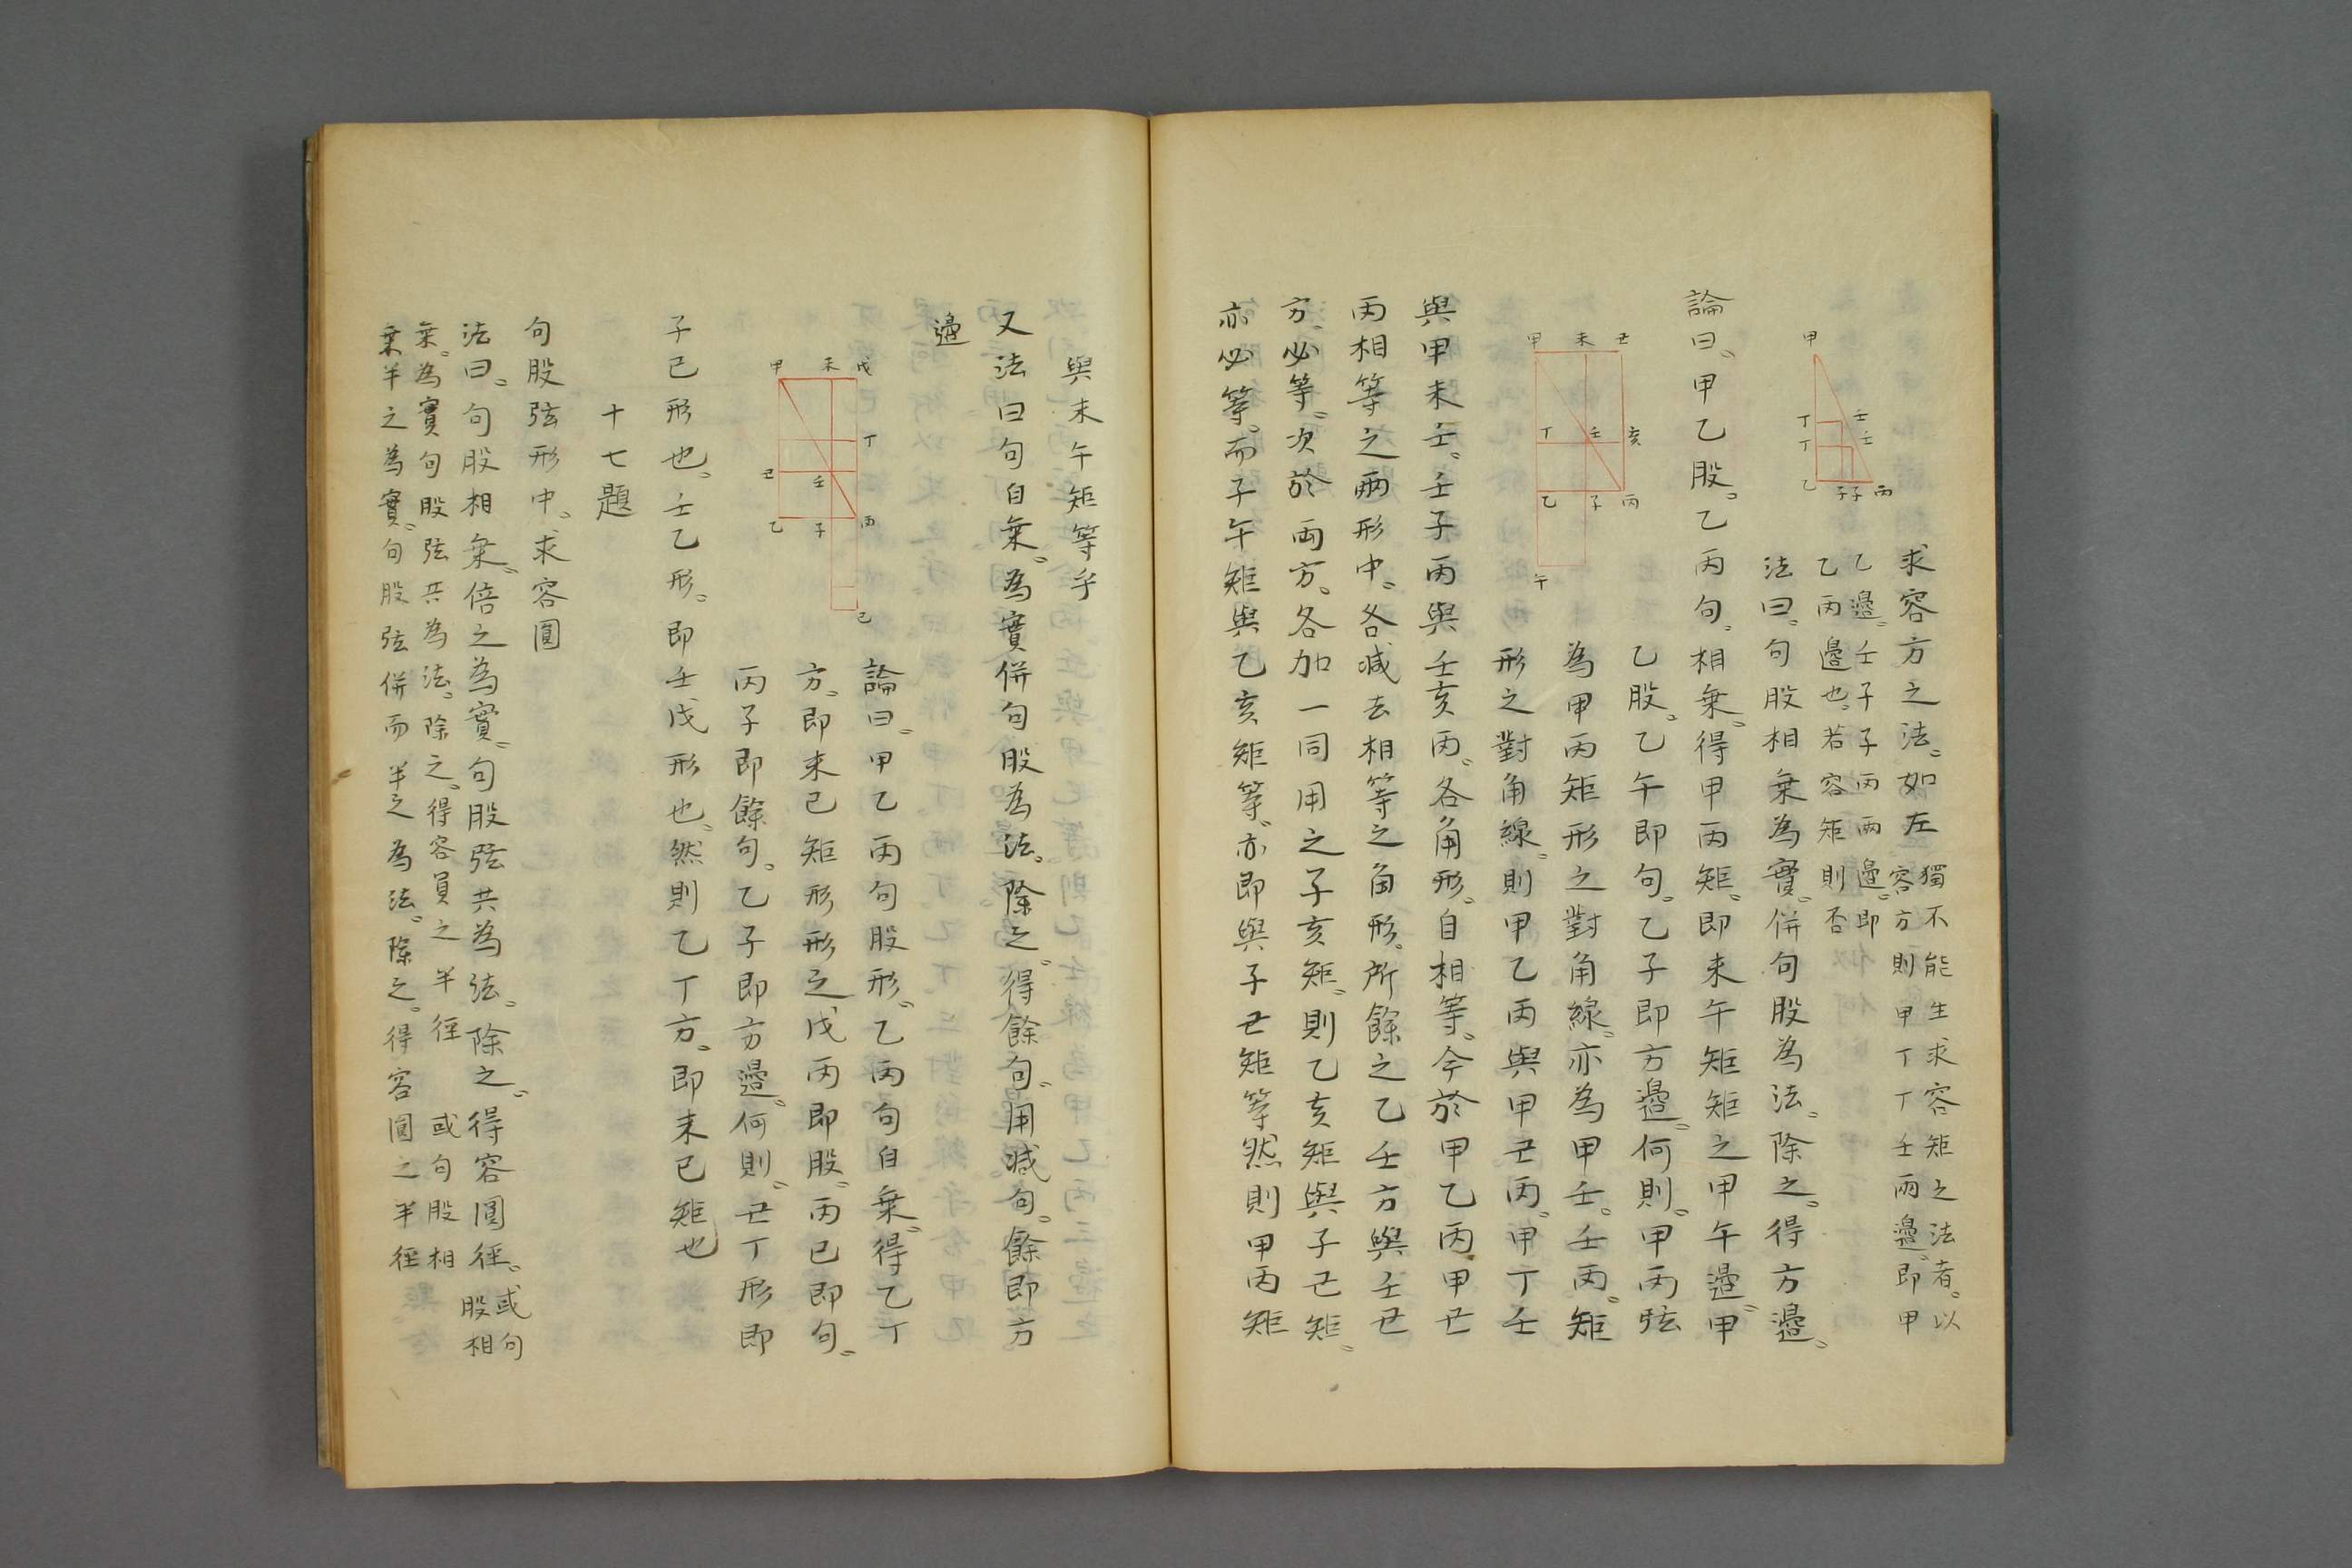 求容方之法。如左
獨不能生求容矩之法者。以
容方則甲丁丁壬兩邊。即甲
乙邊。壬子子丙兩邊。即
乙丙邊也。若容矩則否
甲
丁
丁
壬
壬
乙
子子
丙
法曰。句股相乗為實。併句股為法。除之。得方邊。
論曰。甲乙股。乙丙句。相乗。得甲丙矩。即未午矩矩之甲午邊。甲
乙股。乙午即句。乙子即方邊。何則。甲丙弦
為甲丙矩形之對角線。亦為甲壬。壬丙。矩
形之對角線。則甲乙丙與甲丑丙。甲丁壬
甲
未
丑
丁
壬
亥
乙
子
丙
午
與甲未壬。壬子丙與壬亥丙。各角形。自相等。今於甲乙丙。甲丑
丙相等之兩形中。各減去相等之角形。所餘之乙壬方與壬丑
方。必等。次於兩方。各加一同用之子亥矩。則乙亥矩與子丑矩。
亦必等。而子午矩與乙亥矩等。亦即與子丑矩等。然則甲丙矩
與未午矩等乎
又法曰句自乗。為實併句股為法。除之。得餘句。用減句。餘即方
邊
甲
未
戊
丁
丑
壬
乙
子
丙
己
論曰。甲乙丙句股形。乙丙句自乗。得乙丁
方。即未己矩形形之戊丙即股。丙己即句。
丙子即餘句。乙子即方邊。何則。丑丁形即
子己形也。壬乙形。即壬戊形也。然則乙丁方。即未己矩也
十七題
句股弦形中。求容圓
法曰。句股相乗。倍之為實。句股弦共為法。除之。得容圓径。
或句
股相
乗。為實句股弦共為法。除之。得容員之半徑
或句股相
乗半之為實。句股弦併而半之為法。除之。得容圓之半徑